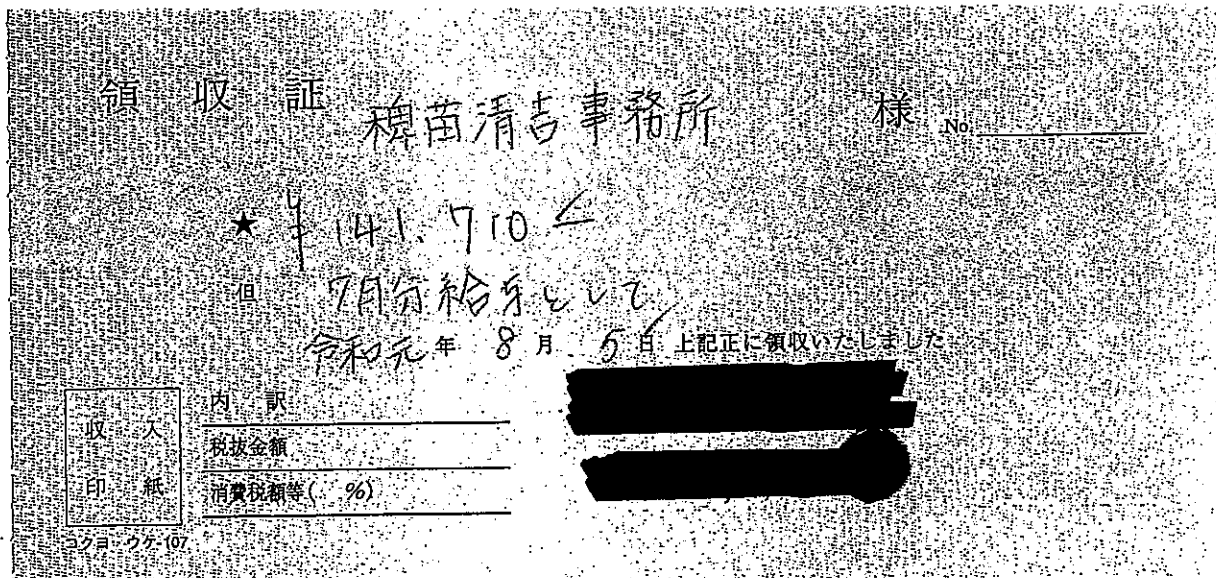 領収証 稗苗清吉事務所 様 No.
★ ¥141.710
但 7月分給与として
令和元年 8月 5日 上記正に領収いたしました
内訳
税抜金額
消費税額等( %)
収入
印紙
コクヨ ウケ-107